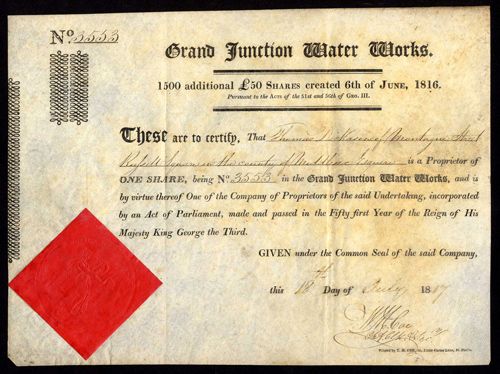 No. 3553
Grand Junction Water Works.
1500 additional £50 SHARES created 6th of JUNE, 1816.
Pursuant to the Acts of the 51st and 56th of GEO. III.
These are to certify, That Thomas Dickason of Montague Street
Russell Square in the county of Middlesex Esquire is a Proprietor of
ONE SHARE, being No. 3553 in the Grand Junction Water Works, and is
by virtue thereof One of the Company of Proprietors of the said Undertaking, incorporated
by an Act of Parliament, made and passed in the Fifty first Year of the Reign of His
Majesty King George the Third.
GIVEN under the Common Seal of the said Company,
this 18th Day of July 1817
W. M. Coe